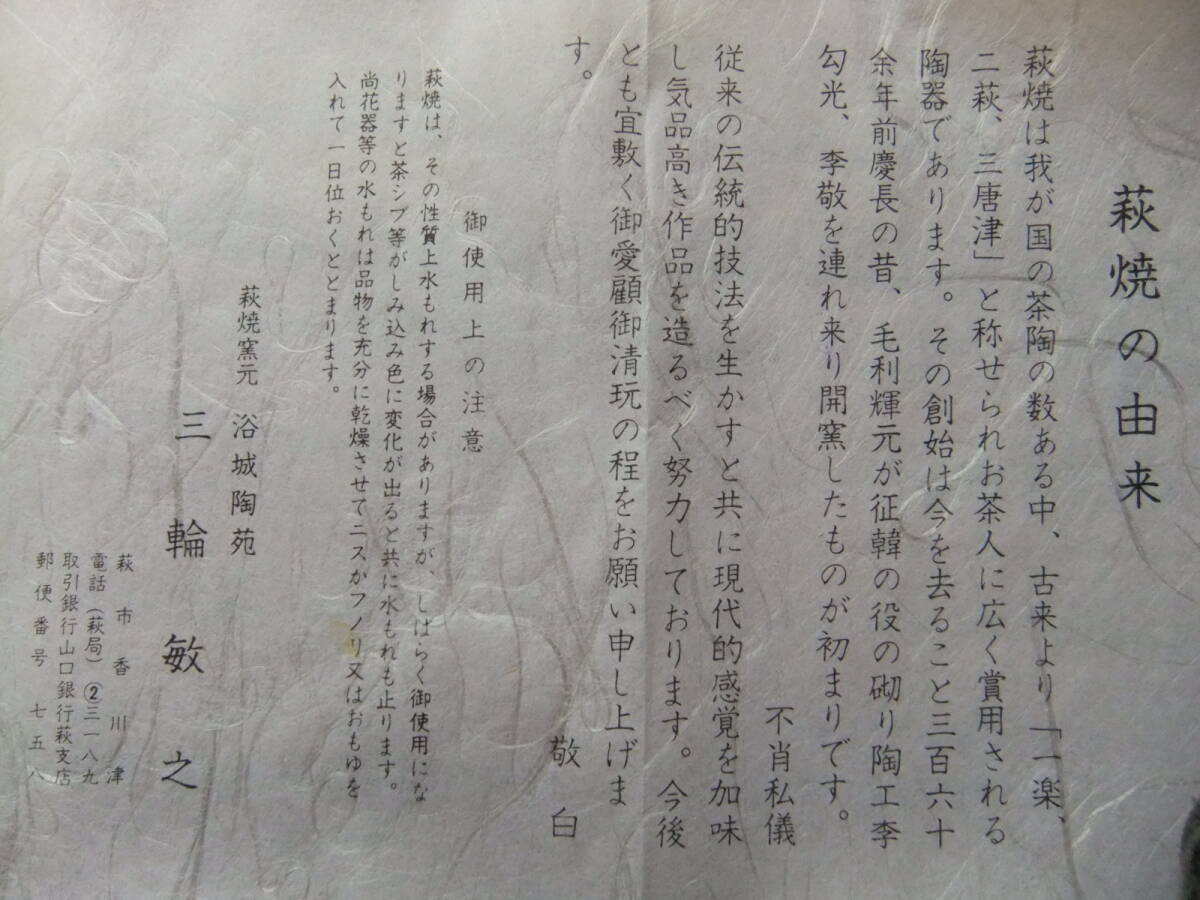 萩焼の由来
萩焼は我が国の茶陶の数ある中、古来より「一楽、
二萩、三唐津」と称せられお茶人に広く賞用される
陶器であります。その創始は今を去ること三百六十
余年前慶長の昔、毛利輝元が征韓の役の砌り陶工李
勾光、李敬を連れ来り開窯したものが初まりです。
不肖私儀
従来の伝統的技法を生かすと共に現代的感覚を加味
し気品高き作品を造るべく努力しております。今後
とも宜敷く御愛顧御清玩の程をお願い申し上げま
す。
敬白
御使用上の注意
萩焼は、その性質上水もれする場合がありますが、しばらく御使用にな
りますと茶シブ等がしみ込み色に変化が出ると共に水もれも止ります。
尚花器等の水もれは品物を充分に乾燥させてニスかフノリ又はおもゆを
入れて一日位おくととまります。
萩焼窯元 浴城陶苑
三輪敏之
萩市香川津
電話(萩局)②三一八九
取引銀行山口銀行萩支店
郵便番号七五八